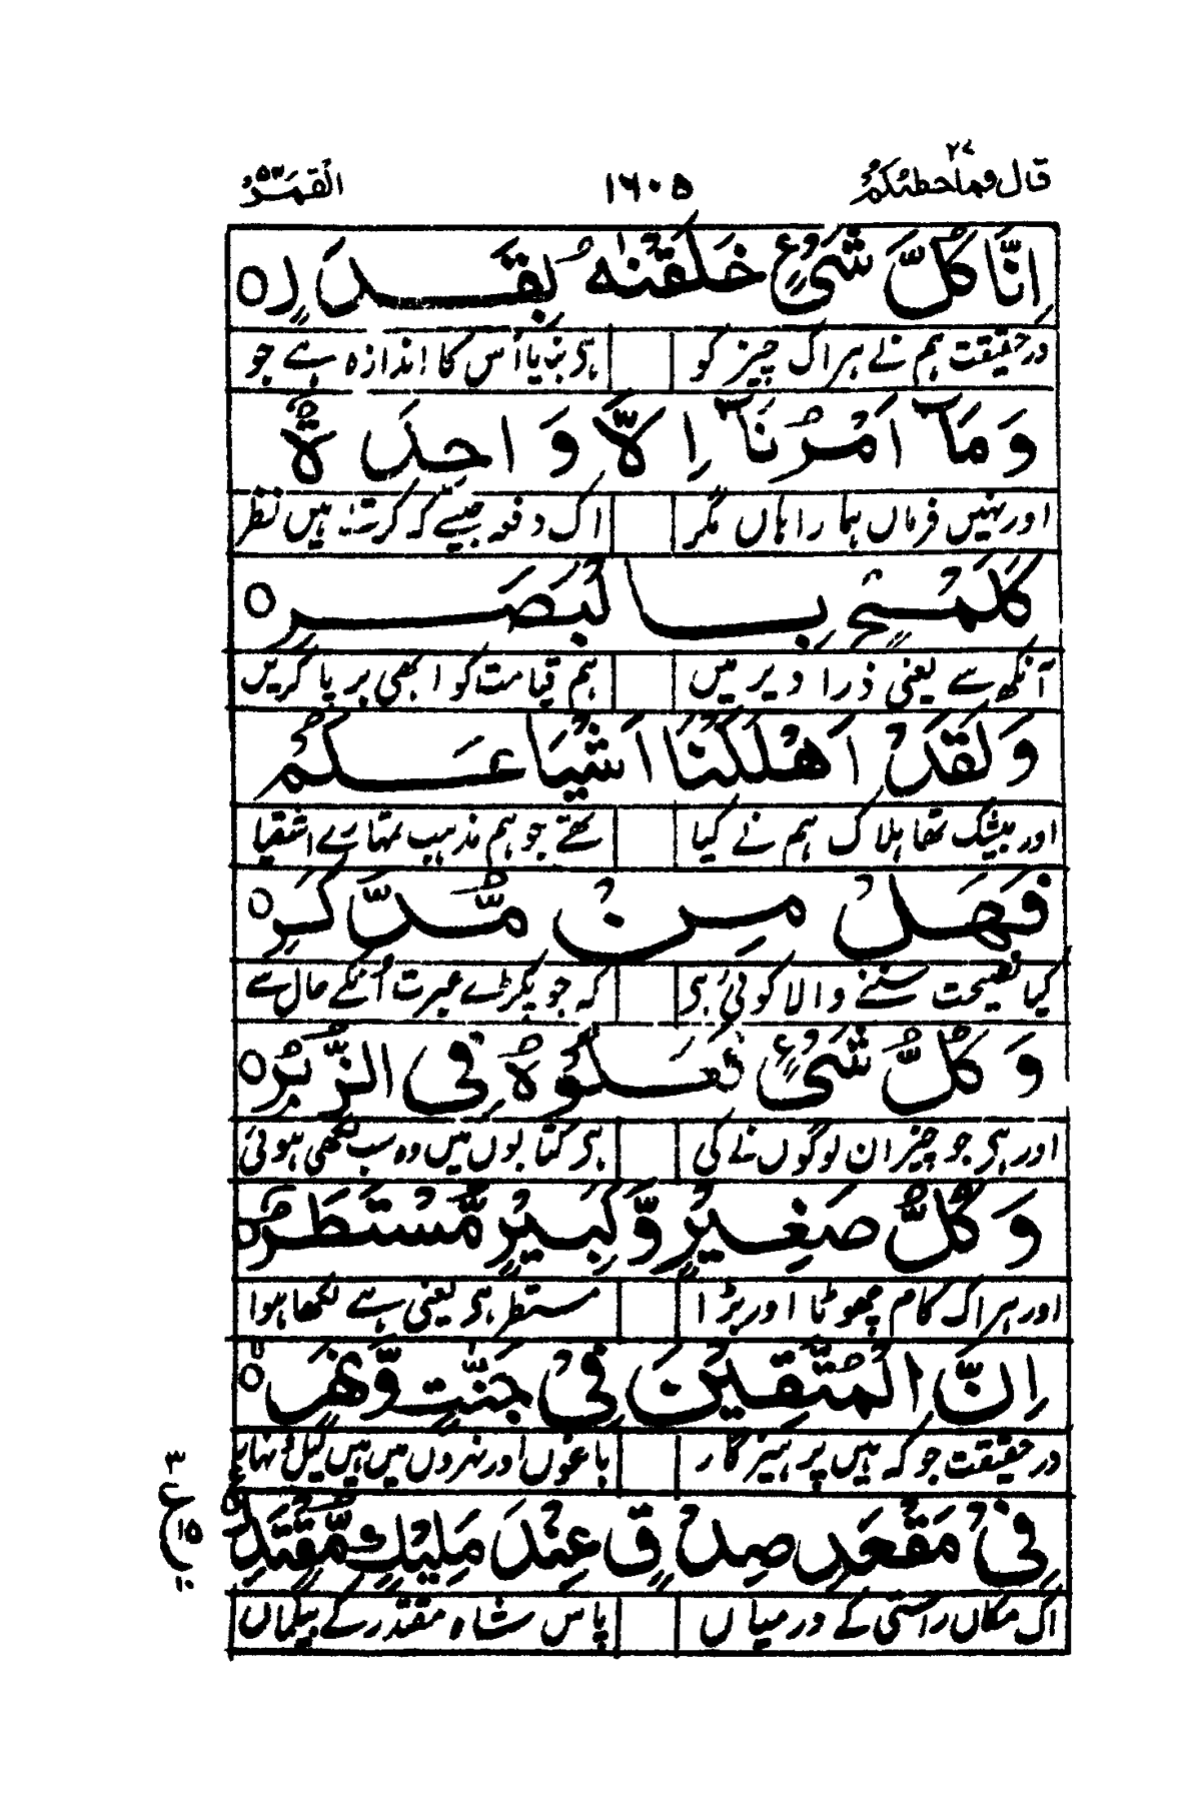 قال فماخطبكم ٢٧
١٦٠٥
القمر ٥٤
اِنَّا كُلَّ شَیْءٍ خَلَقْنٰهُ بِقَدَرٍ ○
درحقیقت ہم نے ہر اک چیز کو ہی بنایا اُس کا اندازہ ہے جو
وَ مَاۤ اَمْرُنَاۤ اِلَّا وَاحِدَةٌ
اور نہیں فرماں ہمارا ہاں مگر اک دفعہ جیسے کہ کرتے ہیں نظر
كَلَمْحٍۭ بِالْبَصَرِ ○
آنکھ سے یعنی ذرا دیر میں ہم قیامت کو ابھی برپا کریں
وَ لَقَدْ اَهْلَكْنَا اَشْیَاعَكُمْ
اور بیشک تھا ہلاک ہم نے کیا تھے جو ہم مذہب تمہارے اشقیا
فَهَلْ مِنْ مُّدَّكِرٍ ○
کیا نصیحت سننے والا کوئی ہی کہ جو پکڑے عبرت اُنکے حال سے
وَ كُلُّ شَیْءٍ فَعَلُوْهُ فِی الزُّبُرِ ○
اور ہی جو چیز ان لوگوں نے کی ہی کتابوں میں وہ سب لکھی ہوئی
وَ كُلُّ صَغِیْرٍ وَّ كَبِیْرٍ مُّسْتَطَرٌ ○
اور ہر اک کام چھوٹا اور بڑا مستطر ہی یعنی ہے لکھا ہوا
اِنَّ الْمُتَّقِیْنَ فِیْ جَنّٰتٍ وَّ نَهَرٍ ○
درحقیقت جو کہ ہیں پرہیزگار باغوں اور نہروں میں ہیں
فِیْ مَقْعَدِ صِدْقٍ عِنْدَ مَلِیْكٍ مُّقْتَدِرٍ
اک مکاں راستی کے درمیاں پاس شاہ مقتدر کے بیگماں
٣
ع
١٥